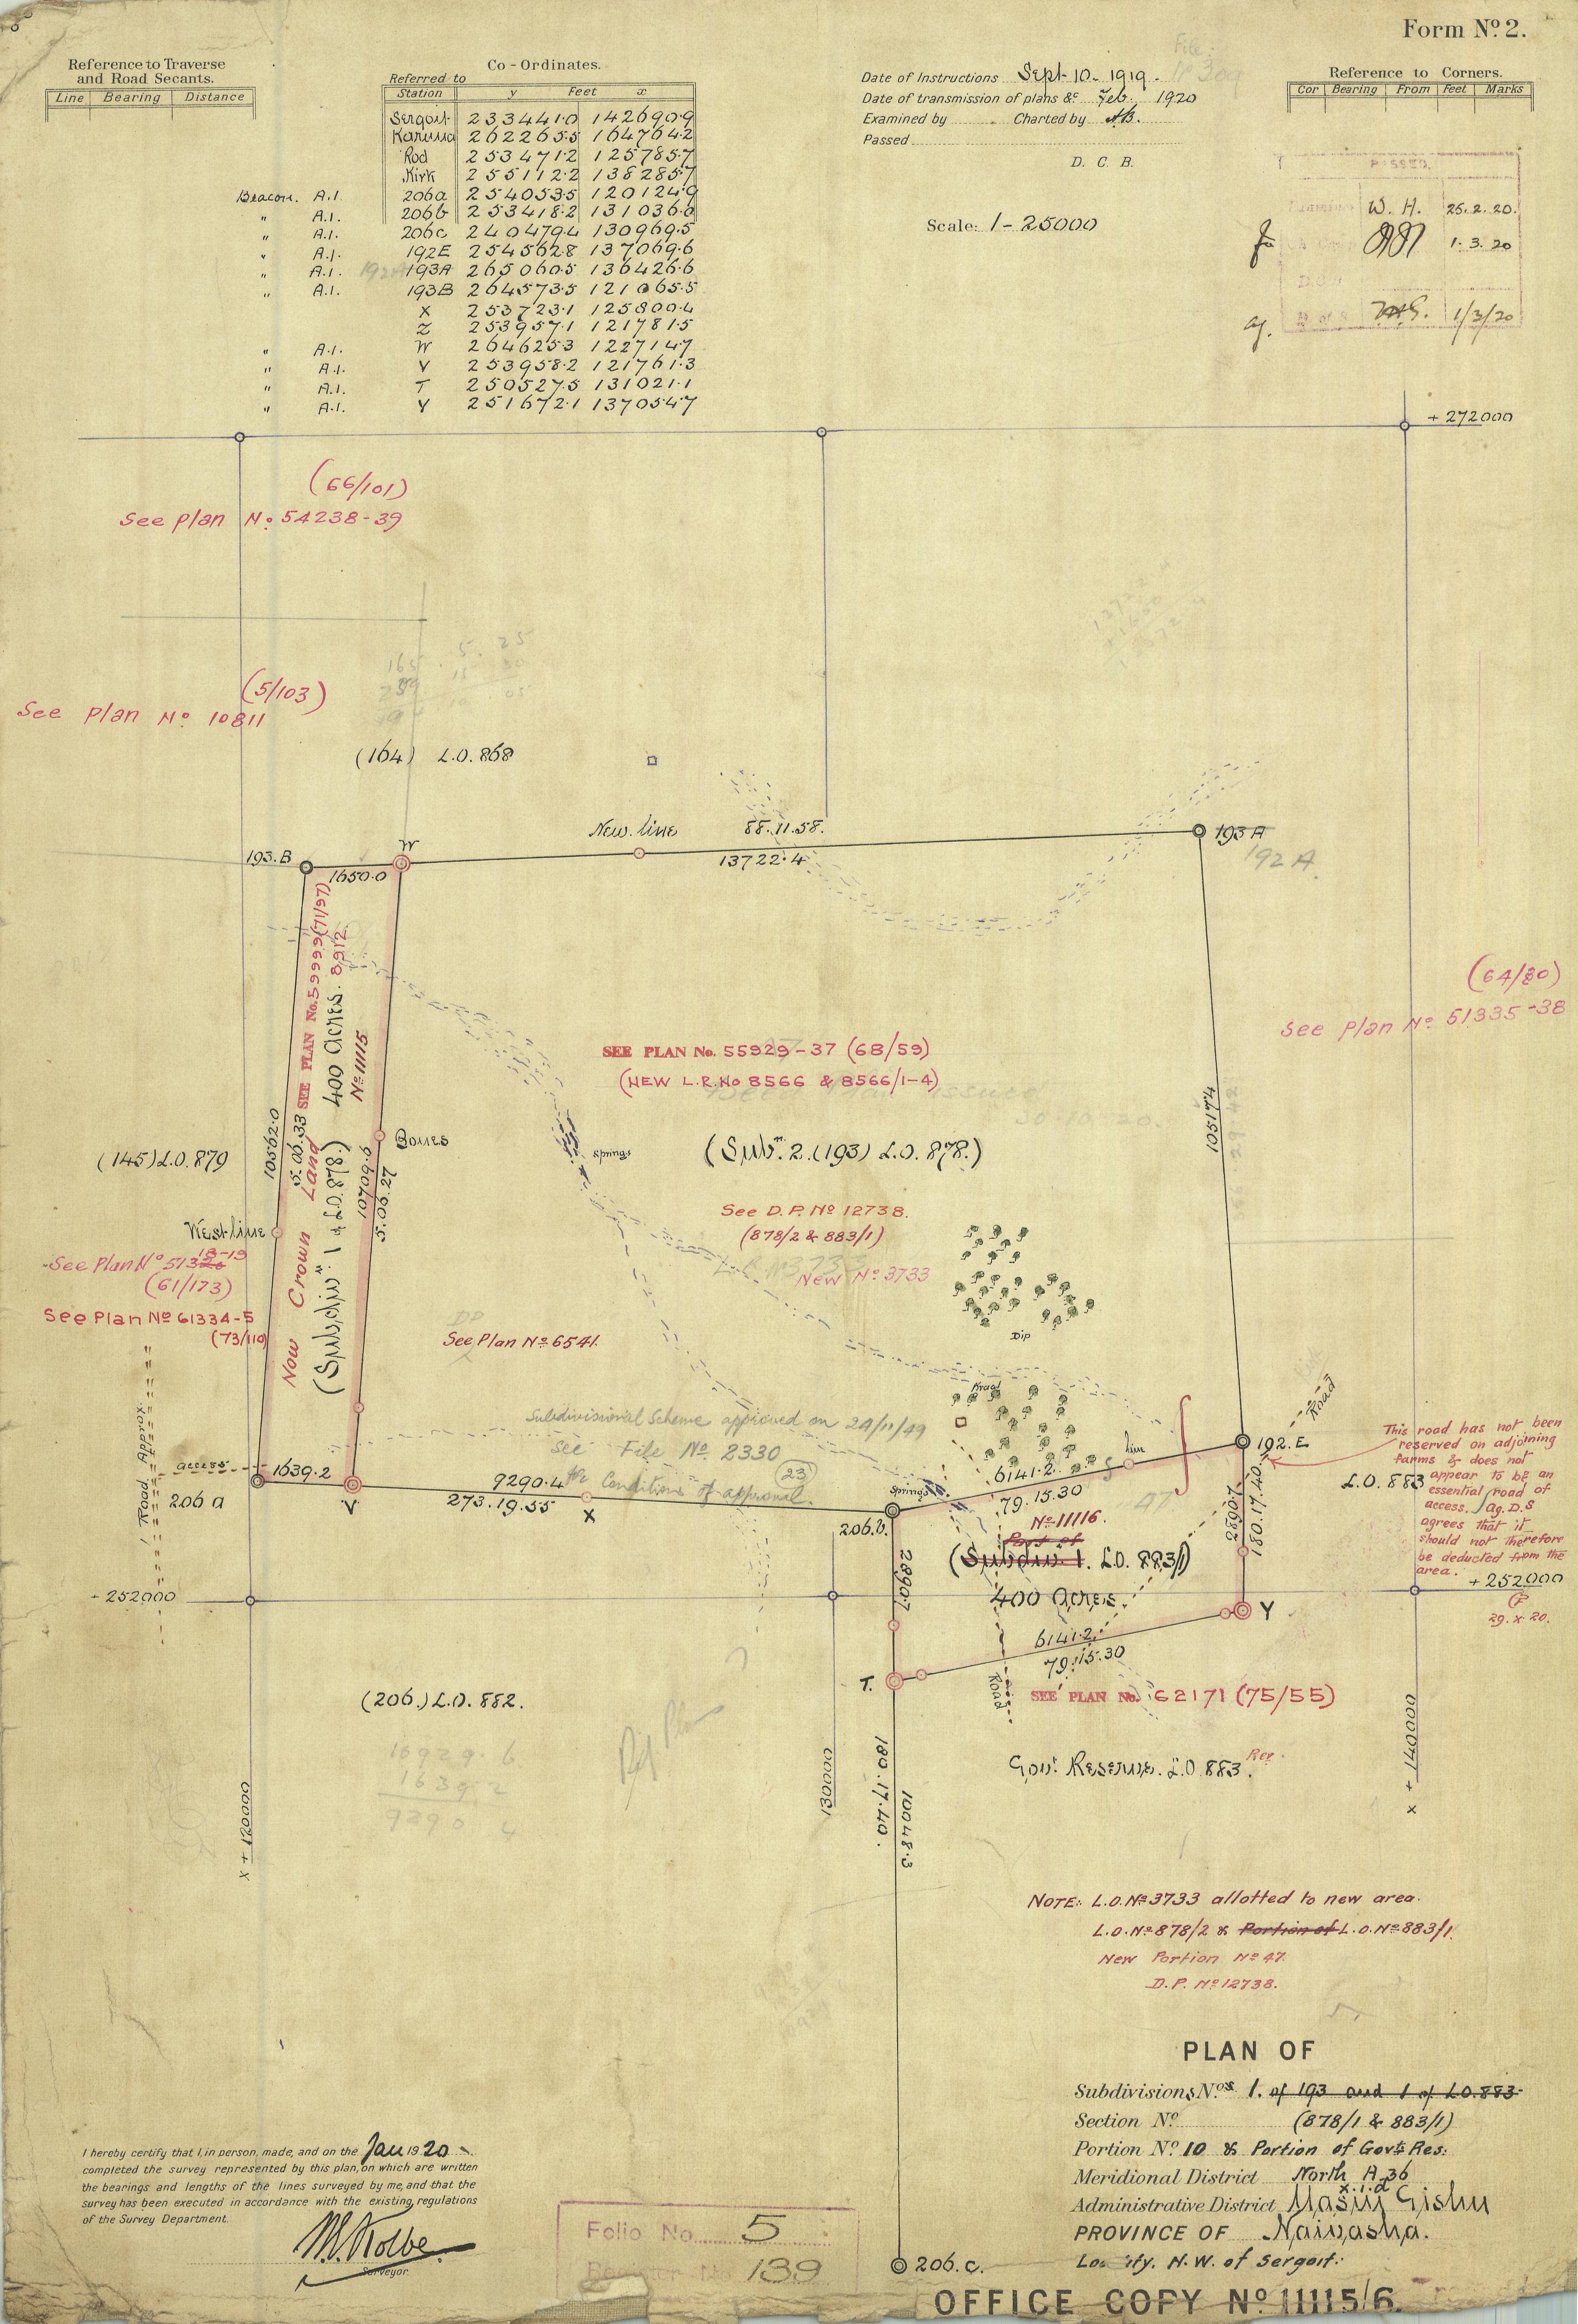 Form Nº 2.
Reference to Traverse
and Road Secants.
Line Bearing Distance
Co-Ordinates.
Referred to
Station y Feet x
Sergoit 233441.0 142690.9
Karuna 262265.5 164764.2
Rod 253471.2 125785.7
Kirk 255112.2 138285.7
Beacon. A.I. 206a 254053.5 120124.9
" A.I. 206b 253418.2 131036.0
" A.I. 206c 240479.4 130969.5
" A.I. 192E 254562.8 137069.6
" A.I. 193A 265060.5 136426.6
" A.I. 193B 264573.5 121065.5
X 253723.1 125800.4
Z 253957.1 121781.5
" A.I. W 264625.3 122714.7
" A.I. V 253958.2 121761.3
" A.I. T 250527.5 131021.1
" A.I. Y 251672.1 137054.7
Date of Instructions Sept. 10. 1919.
Date of transmission of plans &c Feb. 1920
Examined by Charted by AB.
Passed
D. C. B.
Scale: 1-25000
Reference to Corners.
Cor Bearing From Feet Marks
PASSED
W. H. 25.2.20.
1.3.20
1/3/20
+ 272000
(66/101)
See plan Nº 54238-39
(5/103)
See plan Nº 10811
(164) L.O. 868
New line 88.11.58.
13722.4
193.B
W
1650.0
193 A
192 A.
(64/80)
See plan Nº 51335-38
SEE PLAN No. 59999 (71/97)
8912
400 acres.
Nº 11115
Now Crown Land
(Subdivn. 1 of L.O. 878.)
10562.0
5.00.33
10709.6
5.06.27
Bones
SEE PLAN No. 55929-37 (68/59)
(NEW L.R. No 8566 & 8566/1-4)
(Subn. 2. (193) L.O. 878.)
Springs
10517.4
(145) L.O. 879
West line
See Plan Nº 51320
18-19
(61/173)
See Plan Nº 61334-5
(73/110)
See D.P. Nº 12738.
(878/2 & 883/1)
New Nº 3733
See Plan Nº 6541.
Dip
Kraal
Subdivisional Scheme approved on 24/11/49
see File Nº. 2330
(23)
Conditions of approval.
Road Approx.
access
206 a
1639.2
V
9290.4
273.19.55
X
206.b.
Springs
6141.2
79.15.30
line
192.E
Road
2890.7
180.17.40
L.O. 883
This road has not been
reserved on adjoining
farms & does not
appear to be an
essential road of
access. Ag. D.S
agrees that it
should not therefore
be deducted from the
area.
29.x.20.
Nº 11116.
Part of
(Subdiv. 1. L.O. 883/1)
400 acres.
2890.7
+ 252000
+ 252000
Y
6141.2
79.15.30
T.
Road
SEE PLAN No. 62171 (75/55)
(206.) L.O. 882.
Ref Plan
16929.6
1639.2
9290.4
Govt. Reserve. L.O. 883.
x + 120000
130000
x + 140000
180.17.40.
10048.3
NOTE: L.O. Nº 3733 allotted to new area.
L.O. Nº 878/2 & Portion of L.O. Nº 883/1.
New Portion Nº 47.
D.P. Nº 12738.
PLAN OF
Subdivisions Nos. 1. of 193 and 1 of L.O. 883
Section Nº (878/1 & 883/1)
Portion Nº 10 & Portion of Govt. Res:
Meridional District North A 36
x.1.d
Administrative District Uasin Gishu
PROVINCE OF Naivasha.
Locality. N.W. of Sergoit.
I hereby certify that I, in person, made, and on the Jan 1920
completed the survey represented by this plan, on which are written
the bearings and lengths of the lines surveyed by me, and that the
survey has been executed in accordance with the existing regulations
of the Survey Department.
Surveyor.
Folio No. 5
Register No. 139
206.c.
OFFICE COPY Nº 11115/6.